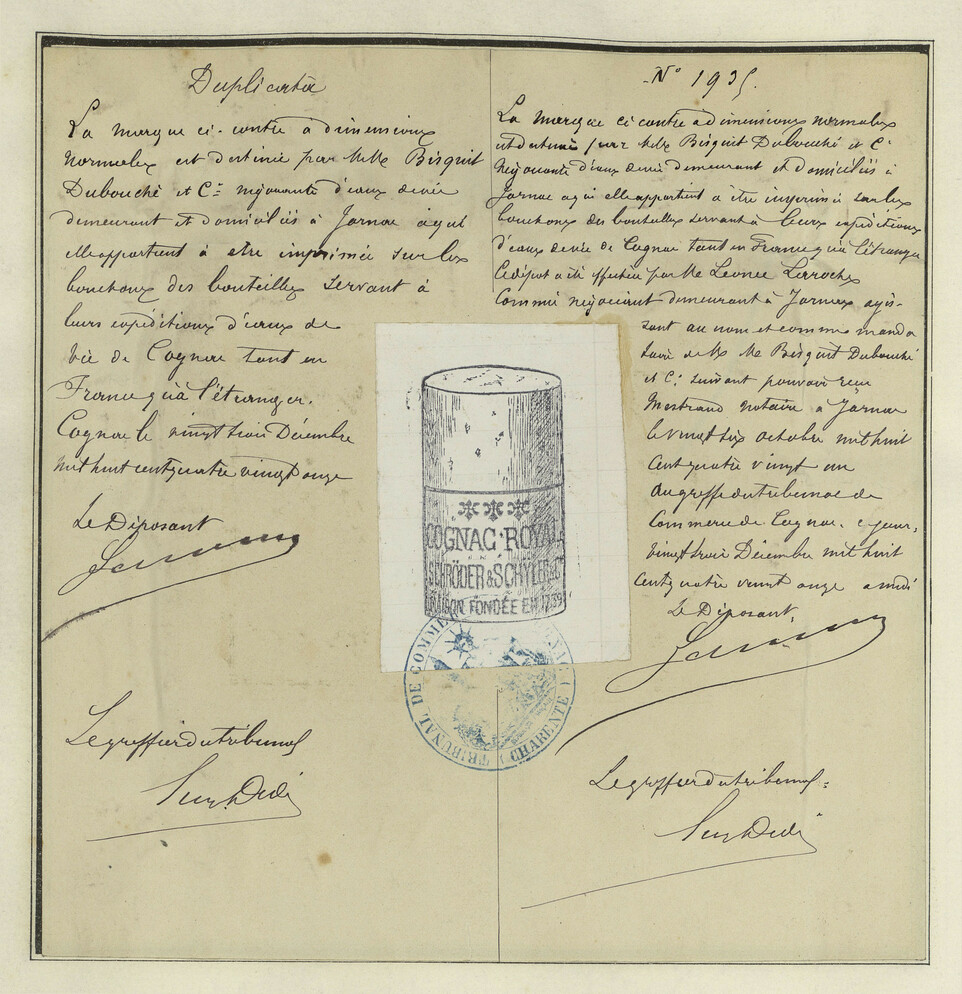 Duplicata
La marque ci-contre à dimensions
normales est destinée par MM Bisquit
Dubouché et Cie négociants d'eaux devie
demeurant et domiciliés à Jarnac à qui
elle appartient à être imprimée sur les
bouchons des bouteilles servant à
leurs expéditions d'eaux de
vie de Cognac tant en
France qu'à l'étranger.
Cognac le vingt trois Décembre
mil huit cent quatre vingt onze
Le Déposant
Le greffier du tribunal
N° 1935.
La marque ci contre a dimensions normales
est destinée par MM Bisquit Dubouché et Cie
Négociants d'eaux devie demeurant et domiciliés à
Jarnac a qui elle appartient a être imprimée sur les
bouchons des bouteilles servant à leurs expéditions
d'eaux devie de Cognac tant en France qu'à l'étranger
Ce dépôt a été effectué par Mr Léonce Laroche
Commis négociant demeurant à Jarnac agis-
sant au nom et comme manda
taire de MM Bisquit Dubouché
et Cie suivant pouvoir reçu
Mestraud notaire à Jarnac
le vingt six octobre mil huit
cent quatre vingt un
au greffe du tribunal de
Commerce de Cognac, ce jour,
vingt trois Décembre mil huit
cent quatre vingt onze a midi
Le Déposant,
Le greffier du tribunal
COGNAC ROYAL
SCHRÖDER & SCHYLER & Cº
MAISON FONDÉE EN 1739
TRIBUNAL DE COMMERCE COGNAC (CHARENTE)